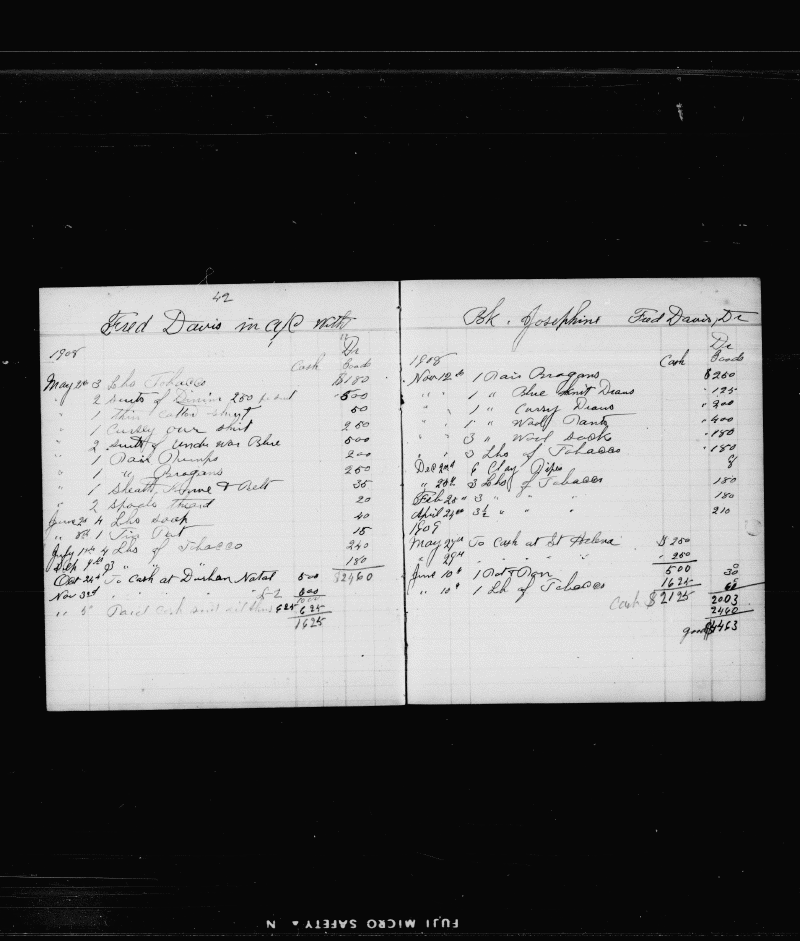 42
Fred Davis in a/c With
1908
Dr
Cash Goods
May 20th 3 Lbs Tobacco $180
" 2 suits of Denim 250 500
" 1 thin shirt 50
" 1 Cursey over shirt 250
" 2 suits of under wear Blue 500
" 1 Pair Pumps 200
" 1 " Brogans 250
" 1 Sheath Knive & Belt 35
" 2 Spools Thread 20
June 2d 4 Lbs soap 40
" 8th 1 Tin Pot 15
July 11th 4 Lbs of Tobacco 240
Sep 9th 3 " " 180
Oct 24th To Cash at Durban Natal 500 $2460
Nov 3rd " " " " £-2 500
1000
" 5" Paid Cash 625 625
1625
Bk. Josephine Fred Davis, Dr
Dr
1908 Cash Goods
Nov 12th 1 Pair Brogans $250
" " 1 " Blue knit Draws " 125
" " 1 " Cursey Draws " 200
" " 1 " Wool Pants " 400
" " 3 " Wool socks " 180
" " 3 Lbs of Tobacco " 180
Dec 22nd 6 Clay Pipes 8
" 20th 3 Lbs of Tobacco 180
Feb 20th 3 " " " 180
April 24th 3½ " " " 210
1909
May 27th To Cash at St Helena $250
" 29th " " " " " 250
500
June 10th 1 Pot & Pan 30
" 10th 1 Lb of Tobacco 1625 60
Cash $2125 2003
2460
goods $4463
FUJI MICRO SAFETY ▲ N